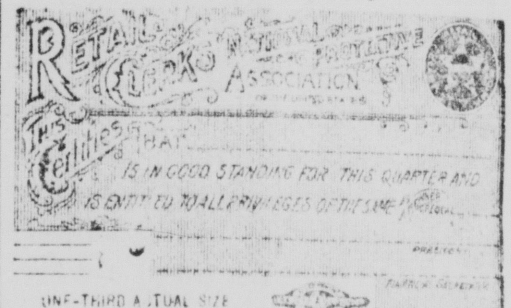 RETAIL CLERKS NATIONAL PROTECTIVE
ASSOCIATION
THIS Certifies THAT
IS IN GOOD STANDING FOR THIS QUARTER AND
IS ENTITLED TO ALL PRIVILEGES OF THE SAME
ONE-THIRD ACTUAL SIZE